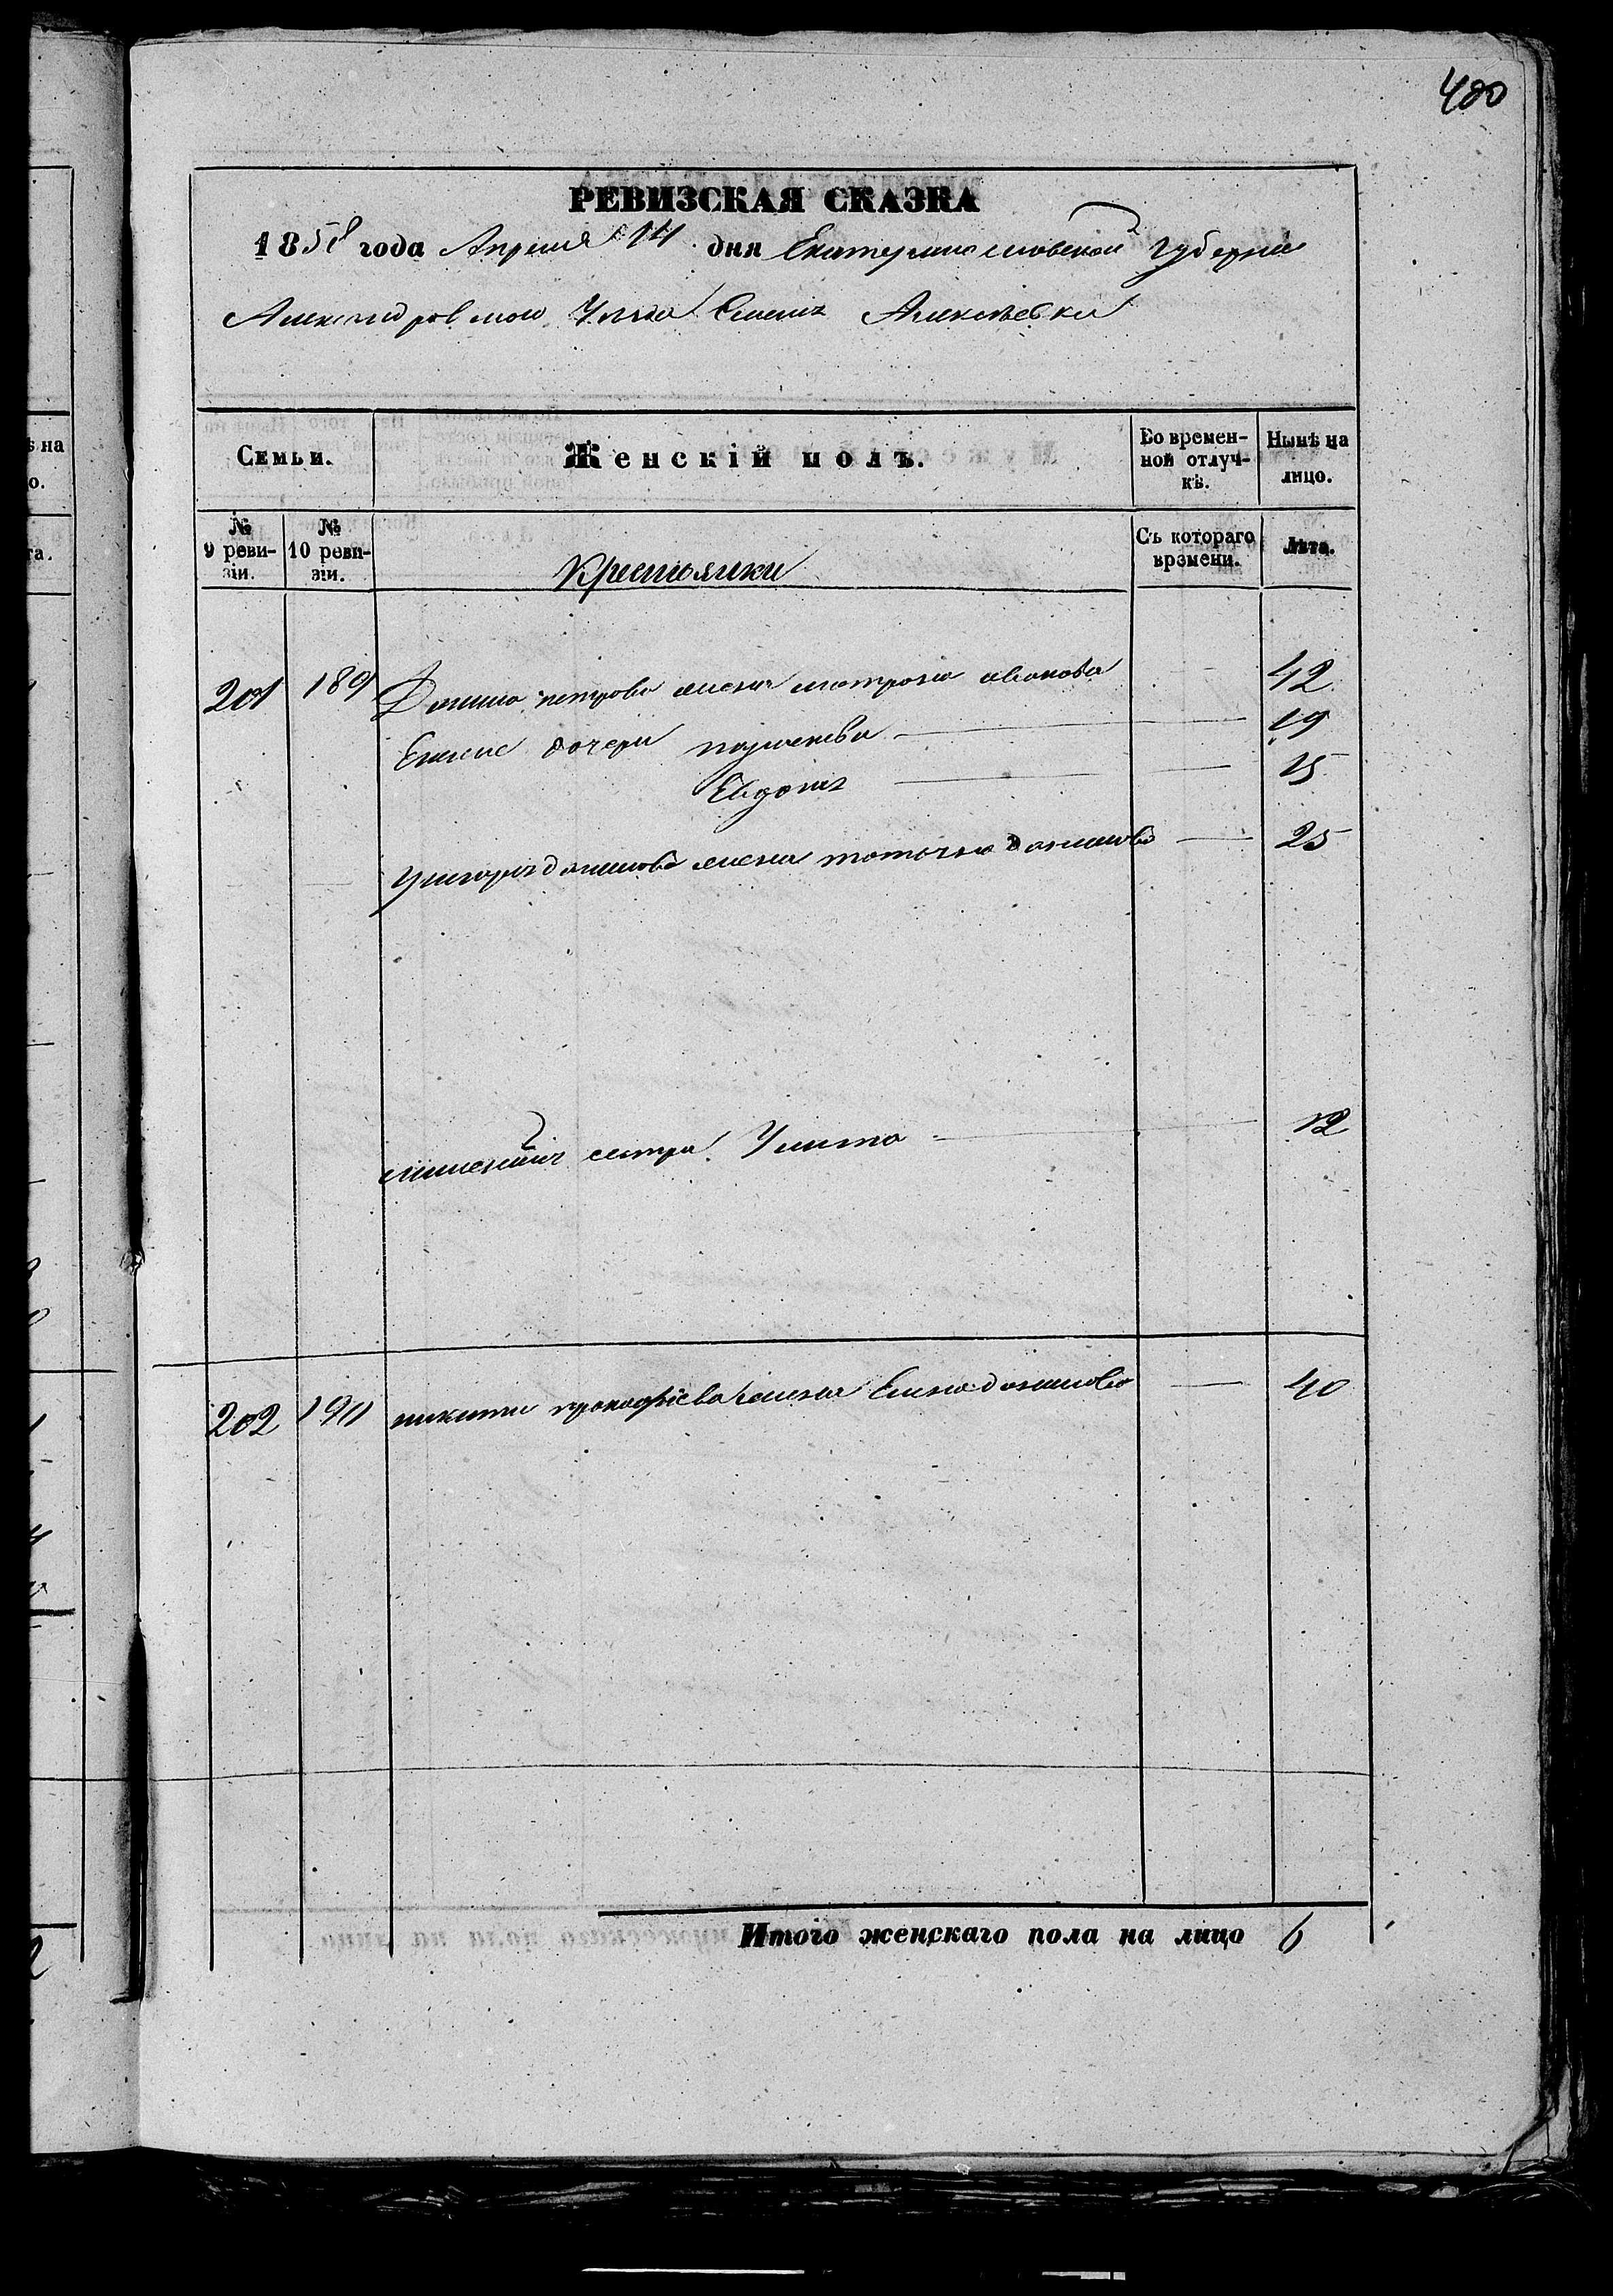 400
РЕВИЗСКАЯ СКАЗКА
1858 года Апреля 14 дня Екатеринославской Губерніи
Александровского Уезда Алексѣевки
Семьи.
Женскій полъ.
Во времен-
ной отлуч-
кѣ.
Нынѣ на
лицо.
№
9 реви-
зіи.
№
10 реви-
зіи.
Крестьянки
Съ котораго
времени.
Лѣта.
201 189 Данила петрова жена матрона иванова 42
Его дочери 19
Евдокия 15
данилова жена 25
сестра Улита 12
202 190 никиты прокофіева жена Елена данилова 40
Итого женскаго пола на лицо 6